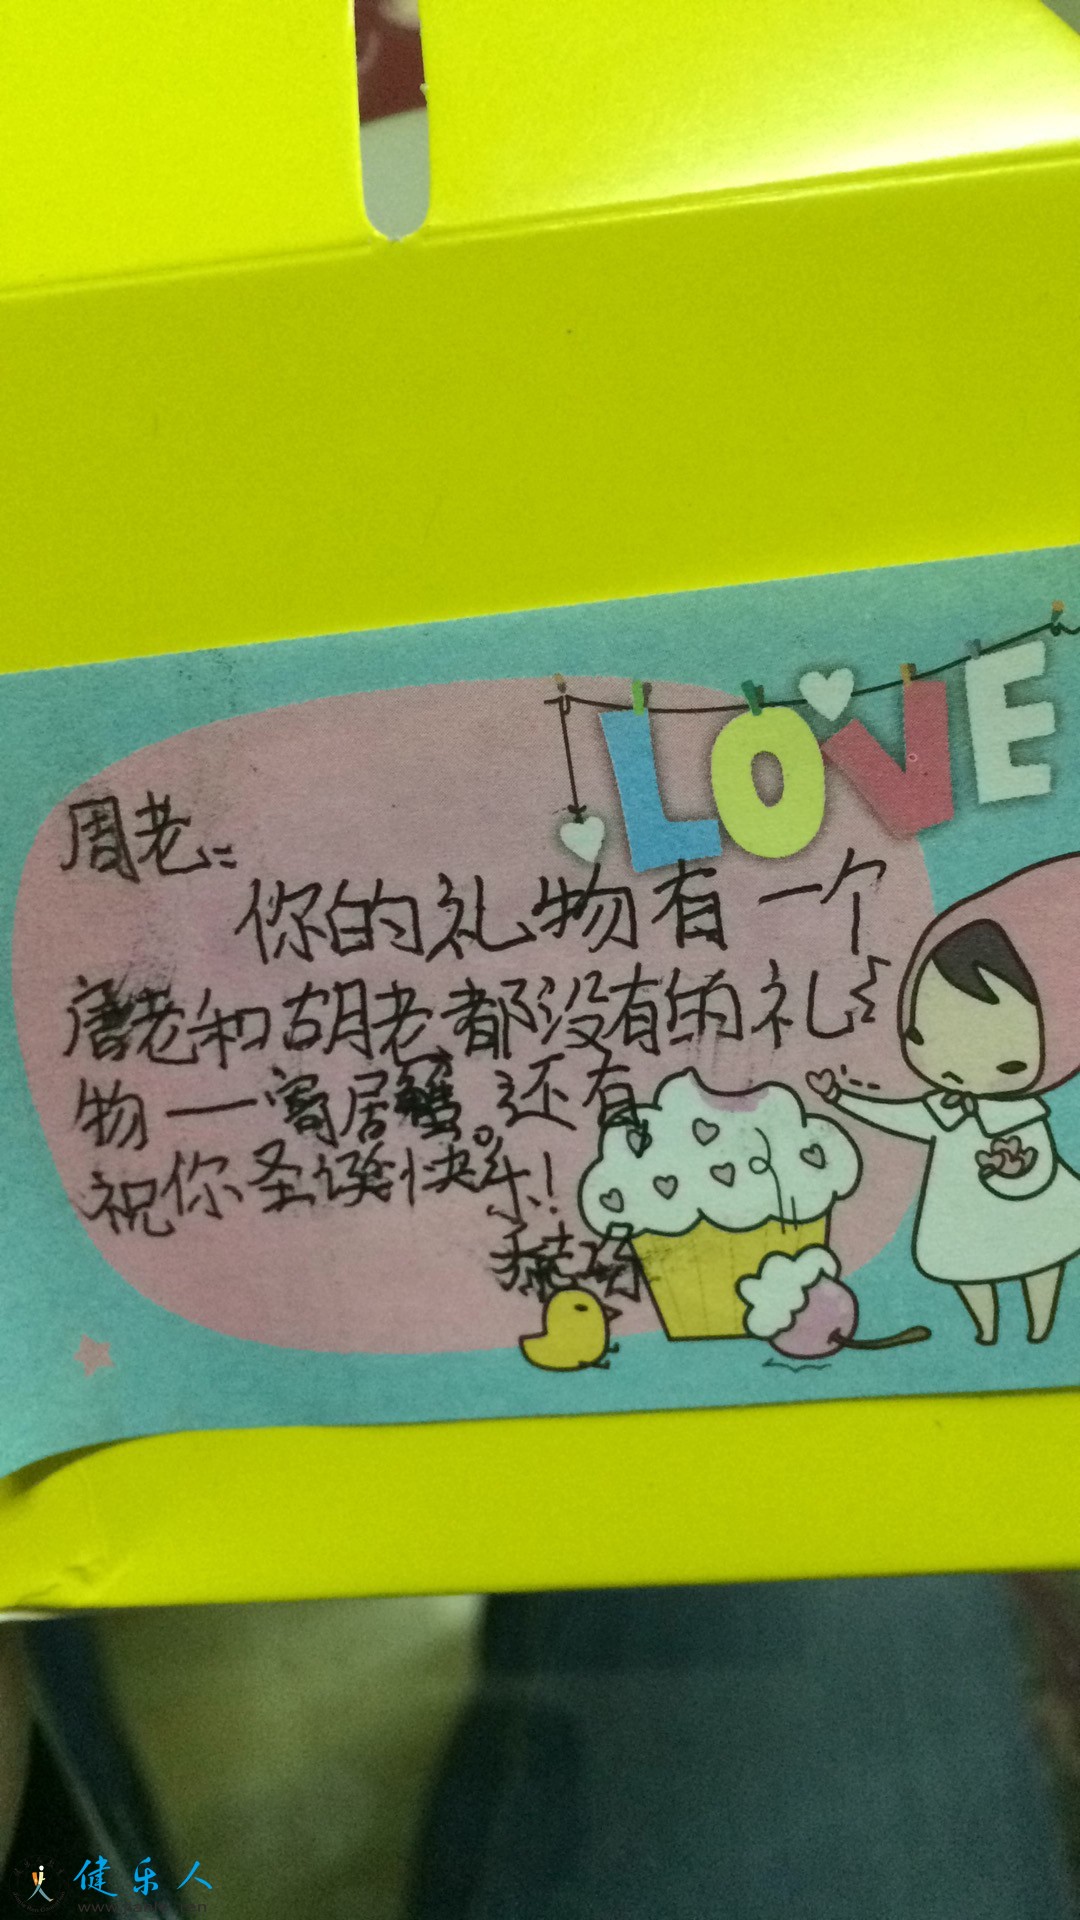 LOVE
周老:
你的礼物有一个
唐老和胡老都没有的礼
物一寄居蟹。还有
祝你圣诞快乐!
健乐人